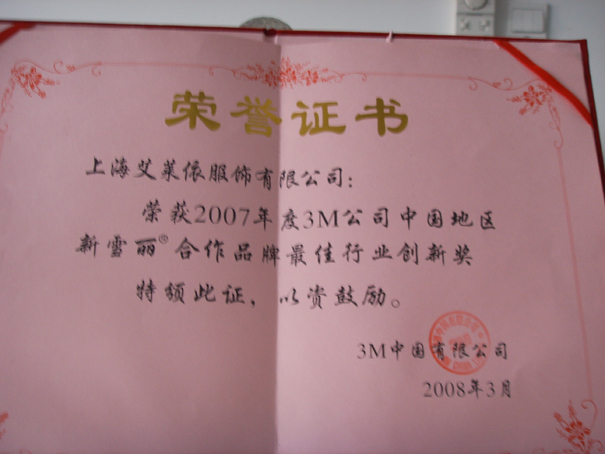 荣誉证书
上海艾莱依服饰有限公司：
荣获2007年度3M公司中国地区
新雪丽®合作品牌最佳行业创新奖
特颁此证，以资鼓励。
3M中国有限公司
2008年3月